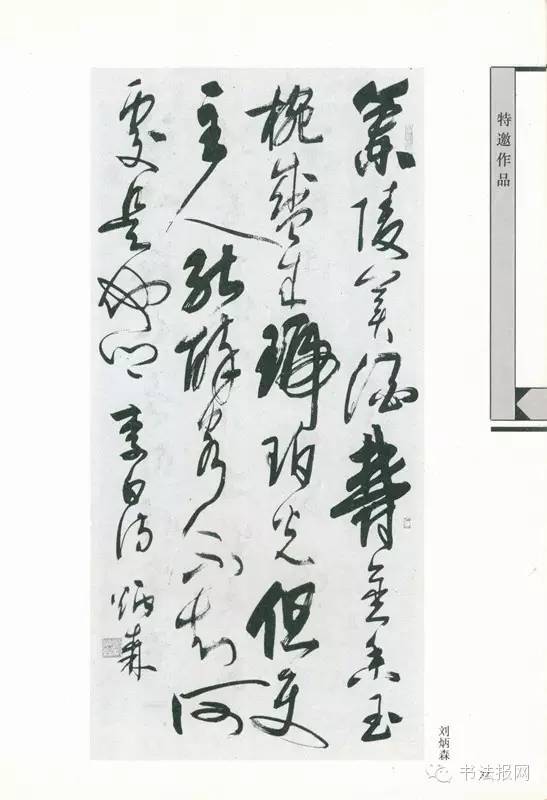 蘭陵美酒鬱金香玉
椀盛来琥珀光但使
主人能醉客不知何
處是他鄉 李白詩 炳森
特邀作品
刘炳森
书法报网